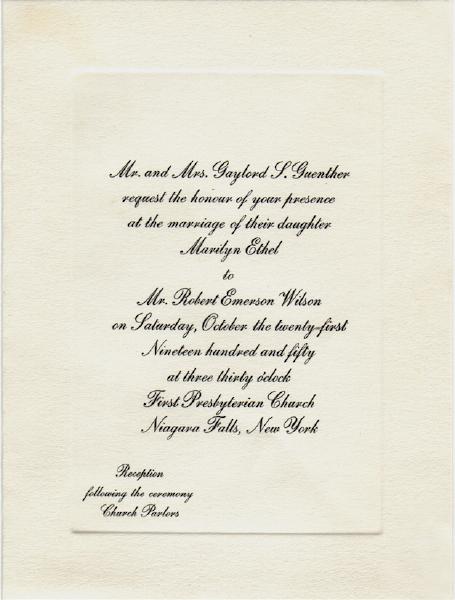 Mr. and Mrs. Gaylord S. Guenther
request the honour of your presence
at the marriage of their daughter
Marilyn Ethel
to
Mr. Robert Emerson Wilson
on Saturday, October the twenty-first
Nineteen hundred and fifty
at three thirty o'clock
First Presbyterian Church
Niagara Falls, New York
Reception
following the ceremony
Church Parlors